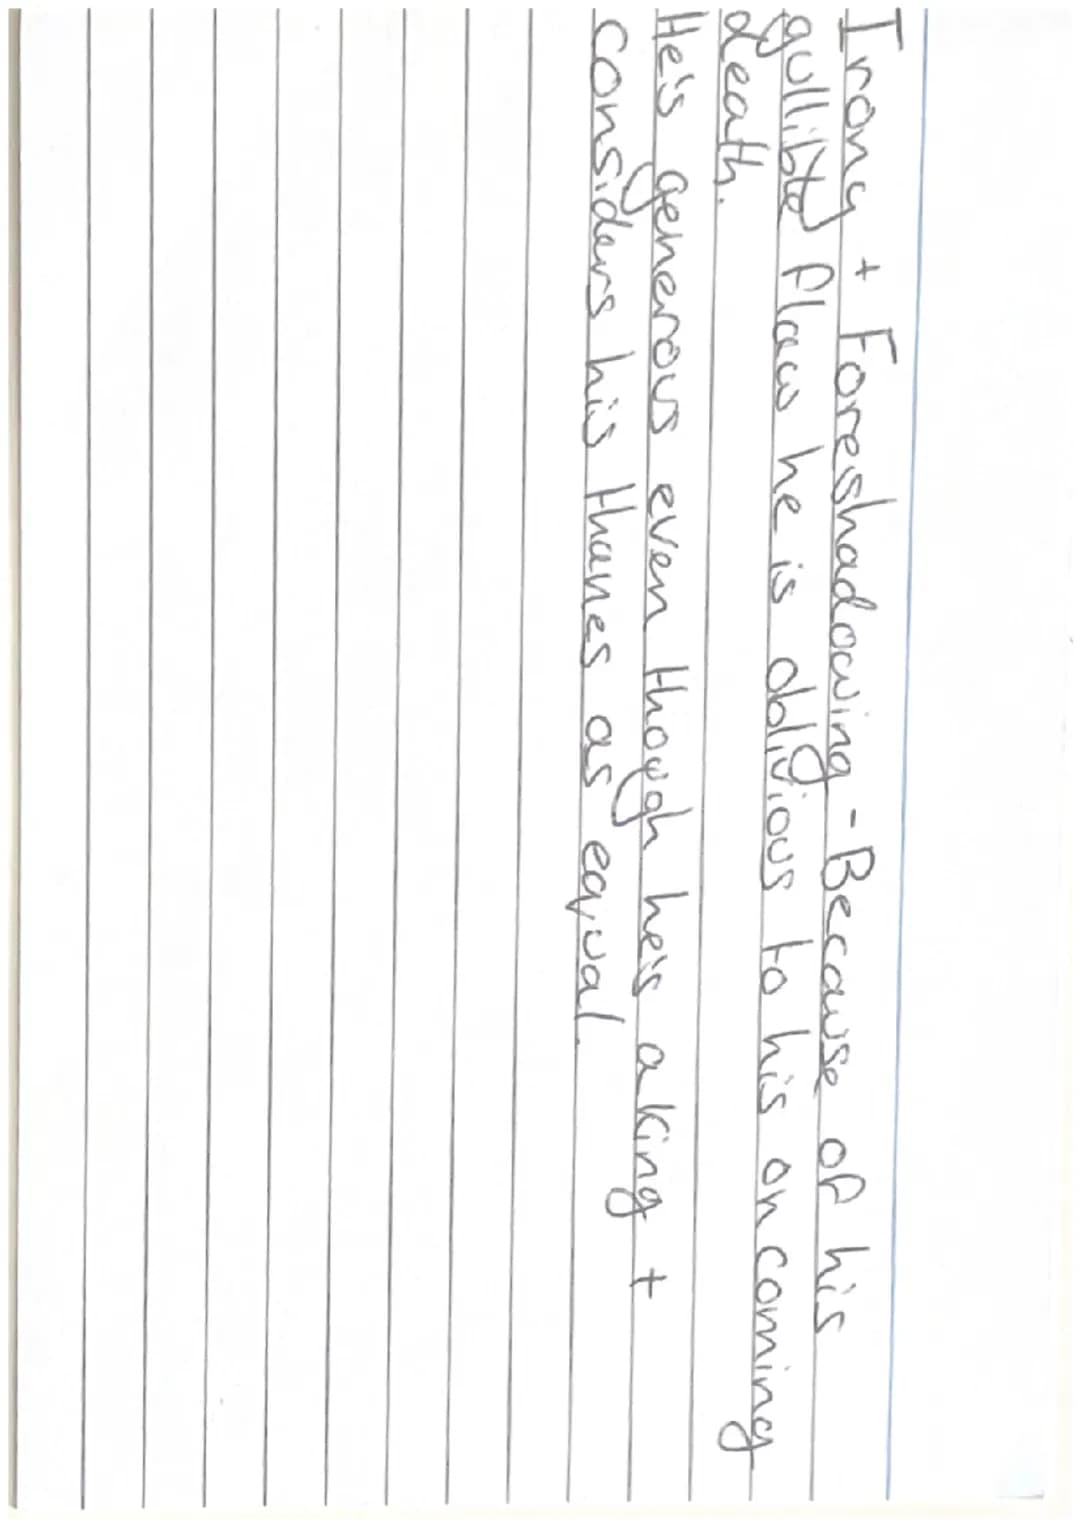 Irony + Foreshadowing - Because of his
gullible flaw he is oblivious to his on coming
death.
He's generous even though he's a king +
considers his thanes as equal.